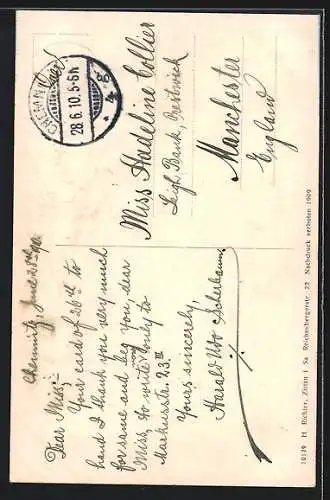 CHEMNITZ
28.6.10. 5-6 N
* 4 g
Miss Madeline Collier
Leigh Bank, Prestwich
Manchester
England
Chemnitz, June 28th 1910.
Dear Miss,
Your card of 26th to
hand I thank you very much
for same and beg you, dear
Miss, to write only to
Markusstr. 23 III
Yours sincerely,
Harald Otto
10129 H. Richter, Zittau i Sa Reichenbergerstr. 22 Nachdruck verboten 1909